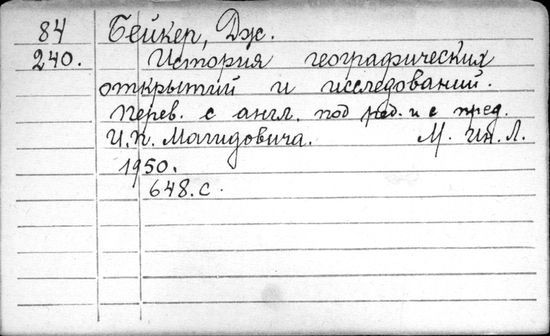 84 Бейкер, Дж.
240. История географических
открытий и исследований.
Перев. с англ. под ред. и с пред.
И.П. Магидовича. М. Ин. Л.
1950.
648. с.